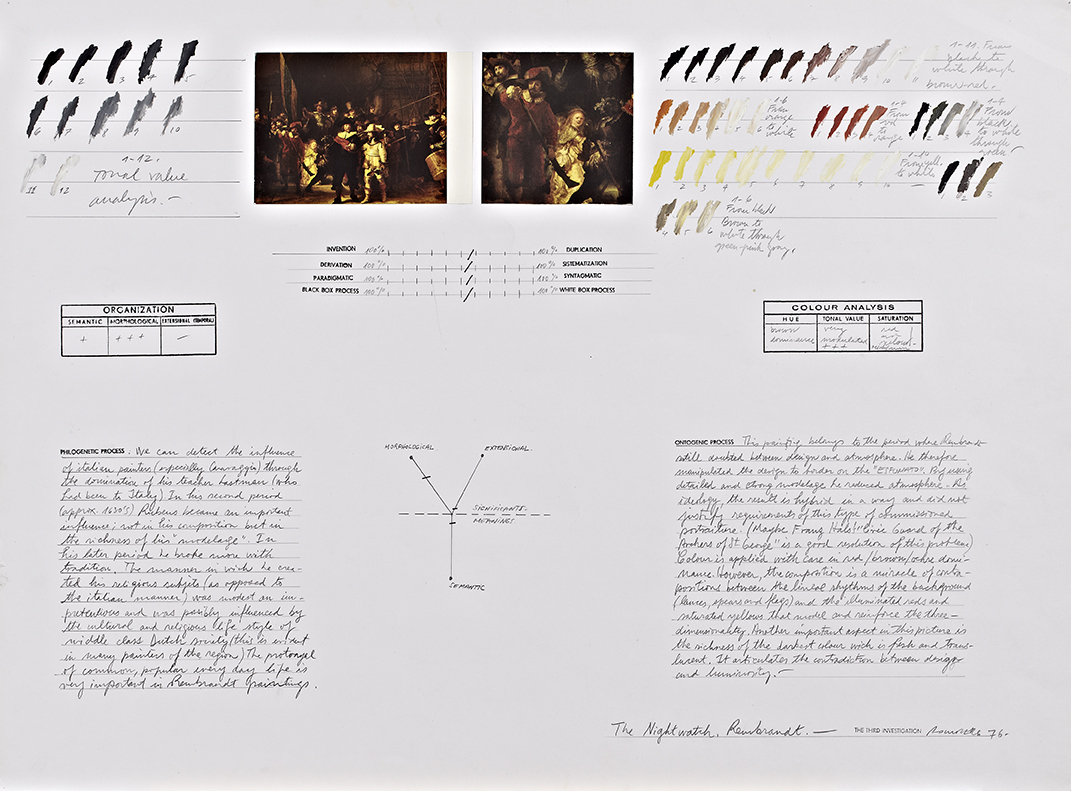 1 2 3 4 5
6 7 8 9 10
11 12
1-12.
Tonal value
analysis.-
1 2 3 4 5 6 7 8 9 10 11
1-11. From
blacks to
white through
brown red.
1 2 3 4 5 6
1-6
From
orange
to
white
1 2 3 4
1-4
From
red
to
orange
1 2 3 4
1-4
From
blacks
to white
through
1 2 3 4 5 6 7 8 9 10
1-10
From yell.
to white
1 2 3
4 5 6
1-6
From black
Brown to
white through
green-pink gray.
INVENTION 100% 100% DUPLICATION
DERIVATION 100% 100% SISTEMATIZATION
PARADIGMATIC 100% 100% SYNTAGMATIC
BLACK BOX PROCESS 100% 100% WHITE BOX PROCESS
ORGANIZATION
SEMANTIC MORPHOLOGICAL EXTENSIONAL (TEMPORAL)
+ +++ −
COLOUR ANALYSIS
HUE TONAL VALUE SATURATION
brown very red
dominance modulated and
+++ yellow
PHILOGENETIC PROCESS: We can detect the influence
of italian painters (especially Caravaggio) through
the domination of his teacher Lastman (who
had been to Italy) In his second period
(approx. 1630's) Rubens became an important
influence; not in his composition but in
the richness of his "modelage". In
his later period he broke more with
tradition. The manner in wich he crea-
ted his religious subjets (as opposed to
the italian manner) was modest an un-
pretentious and was posibly influenced by
the cultural and religious life style of
middle class Dutch society (this is evident
in many painters of the region) The protrayal
of common, popular every day life is
very important in Rembrandt paintings.
MORPHOLOGICAL. EXTENTIONAL.
SIGNIFICANTS.
MEANINGS.
SEMANTIC
ONTOGENIC PROCESS This painting belongs to the period where Rembrandt
still doubted between design and atmosphere. He therefore
manipulated the design to border on the "ESFUMATO". By using
detailed and strong modelage he reduced atmosphere. As
ideology, the result is hybrid in a way and did not
justify requirements of this type of commissioned
portraiture. (Maybe Franz Hals! "Civic Guard of the
Archers of St George" is a good resolution of this problem)
Colour is applied with care in red/brown/ochre domi-
nance. However, the composition is a miracle of contra-
positions between the lineal rhythms of the background
(lances, spears and flags) and the illuminated reds and
saturated yellows that model and reinforce the three-
dimensionality. Another important aspect in this picture is
the richness of the darkest colour wich is fresh and trans-
lucent. It articulates the contradiction between design
and luminosity.-
The Nightwatch, Rembrandt. — THE THIRD INVESTIGATION 76.